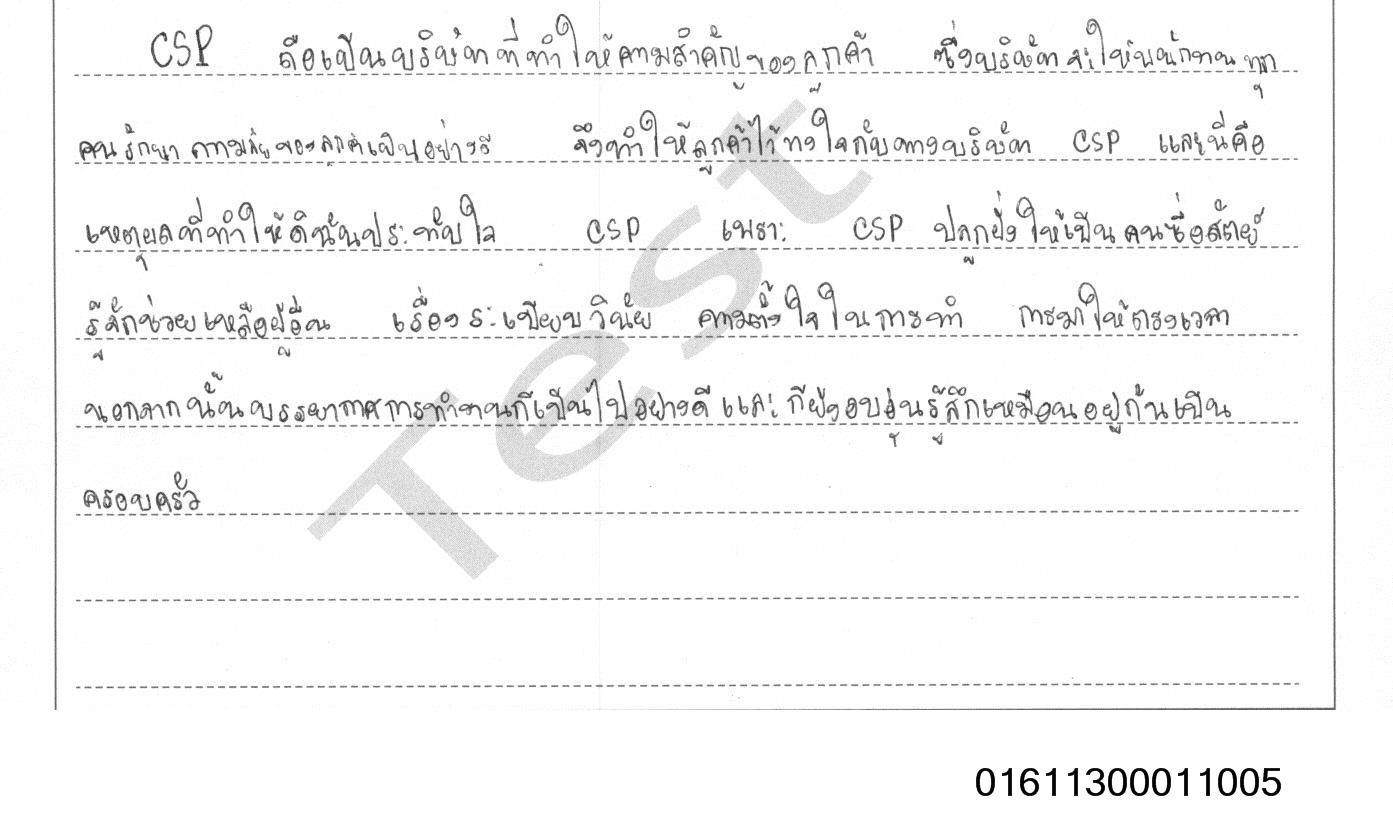 CSP ถือเป็นบริษัทที่ทำให้ความสำคัญของลูกค้า ซึ่งบริษัทจะให้พนักงานทุก
คนรักษาความลับของลูกค้าเป็นอย่างดี จึงทำให้ลูกค้าไว้วางใจกับทางบริษัท CSP และนี่คือ
เหตุผลที่ทำให้ดิฉันประทับใจ CSP เพราะ CSP ปลูกฝังให้เป็นคนซื่อสัตย์
รู้จักช่วยเหลือผู้อื่น เรื่องระเบียบวินัย ความตั้งใจในการทำ การมาให้ตรงเวลา
นอกจากนั้นบรรยากาศการทำงานก็เป็นไปอย่างดีและก็ยังอบอุ่นรู้สึกเหมือนอยู่กันเป็น
ครอบครัว
Test
01611300011005